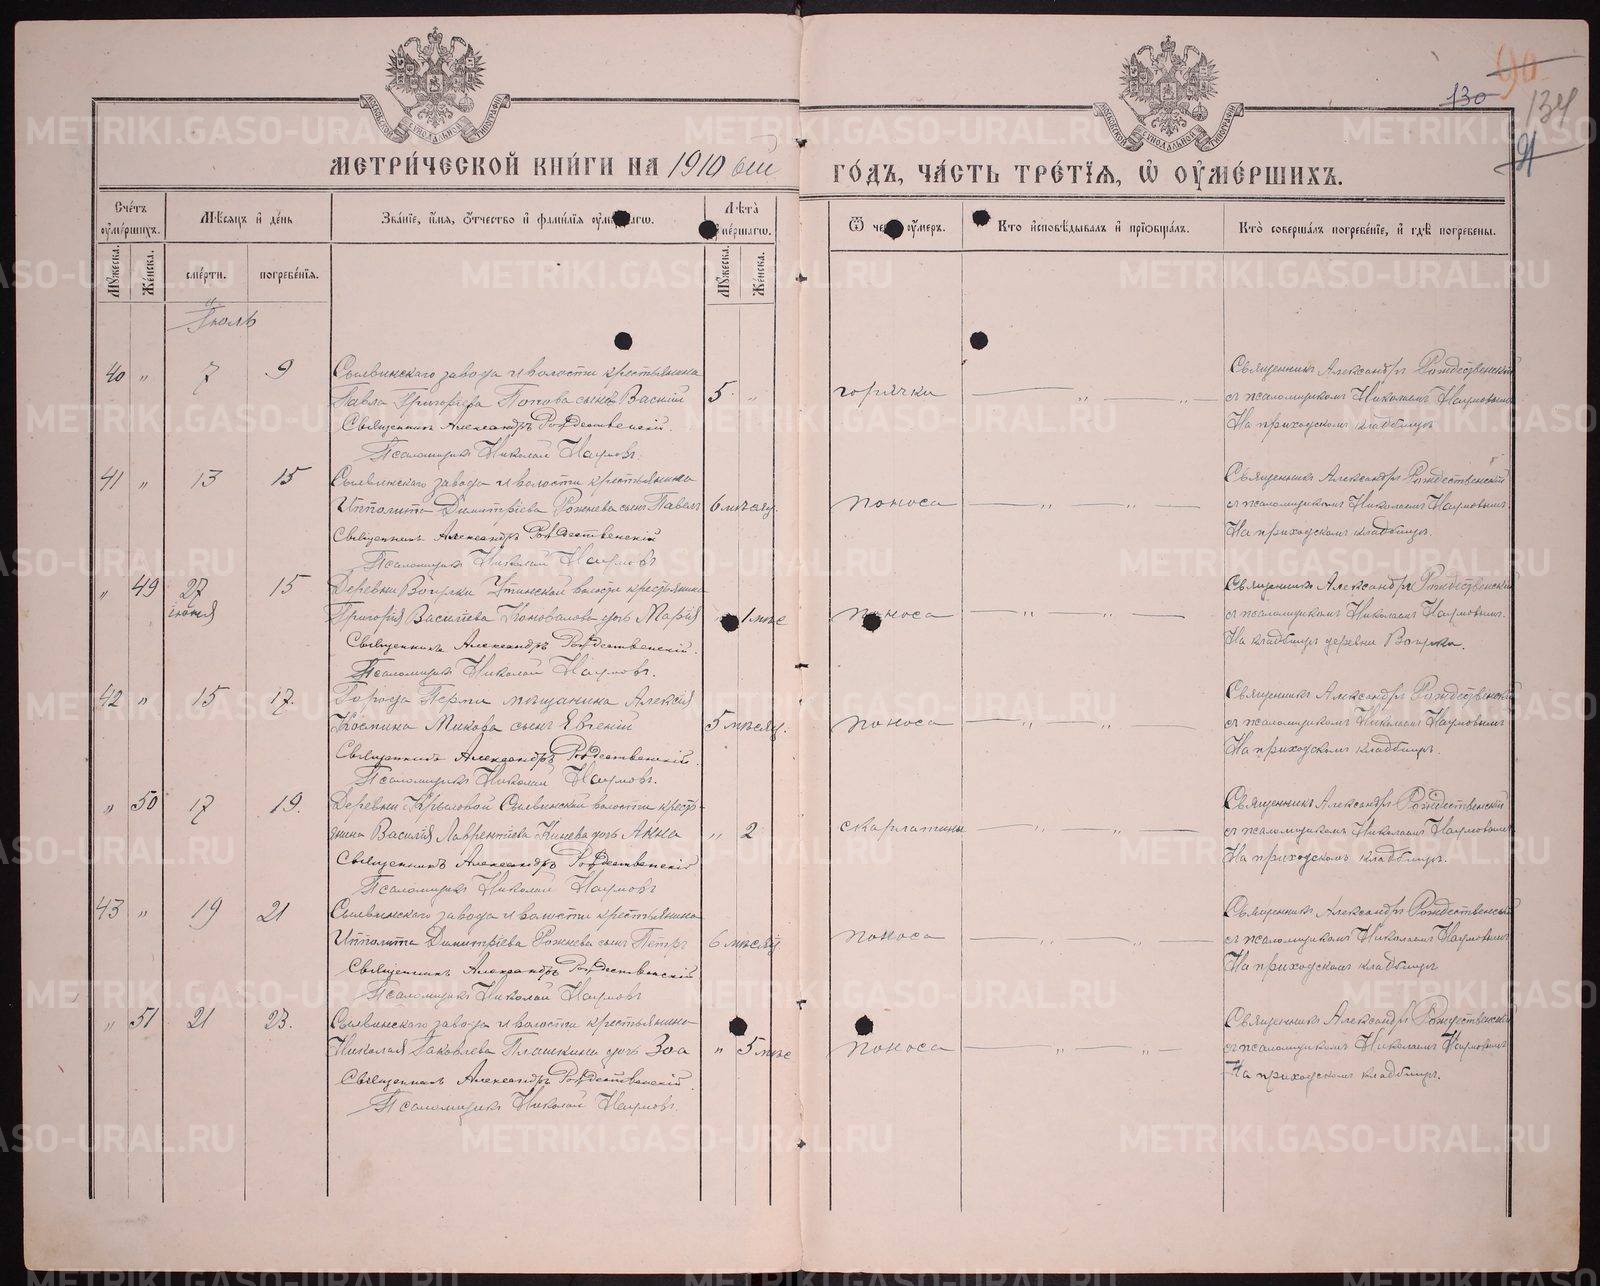 90
130
134
91
МОСКОВСКОЙ СѴНОДАЛЬНОЙ ТИПОГРАФІИ
МОСКОВСКОЙ СѴНОДАЛЬНОЙ ТИПОГРАФІИ
МЕТРИ́ЧЕСКОЙ КНИ́ГИ НА 1910 ый
ГО́ДЪ, ЧА́СТЬ ТРЕ́ТЇѦ, Ѡ ОУМЕ́РШИХЪ.
Сче́тъ оуме́ршихъ.
Мѣ́сѧцъ и де́нь
Зва́нїе, и́мѧ, ѻ́тчество и фами́лїѧ
Лѣ́та
Ѿ чегѡ оу́меръ.
Кто̀ исповѣ́дывалъ и прїѡбща́лъ.
Кто̀ соверша́лъ погребе́нїе, и гдѣ̀ погребены̀.
Мꙋ́жеска.
Же́нска.
сме́рти.
погребе́нїѧ.
Мꙋ́жеска.
Же́нска.
Іюль
40 " 7 9 Сылвинскаго завода и волости крестьянина
Павла Григорьева Попова сынъ Василій 5 "
Священникъ Александръ Рождественскій.
Псаломщикъ Николай Наумовъ.
горячки
Священникъ Александръ Рождественскій
съ псаломщикомъ Николаемъ Наумовымъ
На приходскомъ кладбищѣ
41 " 13 15 Сылвинскаго завода и волости крестьянина
Ипполита Димитріева Рожнева сынъ Павелъ 6 мѣсяц.
Священникъ Александръ Рождественскій
Псаломщикъ Николай Наумовъ
поноса
Священникъ Александръ Рождественскій
съ псаломщикомъ Николаемъ Наумовымъ.
На приходскомъ кладбищѣ.
" 49 27 іюня 15 Деревни волости крестьянина
Григорія Василіева Коновалова дочь Марія 1 мѣс
Священникъ Александръ Рождественскій.
Псаломщикъ Николай Наумовъ.
поноса
Священникъ Александръ Рождественскій
съ псаломщикомъ Николаемъ Наумовымъ.
На кладбищѣ деревни
42 " 15 17 Города Перми мѣщанина Алексія
сынъ Евгеній 5 мѣсяц.
Священникъ Александръ Рождественскій.
Псаломщикъ Николай Наумовъ.
поноса
Священникъ Александръ Рождественскій
съ псаломщикомъ Николаемъ Наумовымъ
На приходскомъ кладбищѣ.
" 50 17 19. Деревни Крыловой Сылвинской волости кресть-
янина Василія Лаврентіева дочь Анна " 2
Священникъ Александръ Рождественскій
Псаломщикъ Николай Наумовъ
скарлатины
Священникъ Александръ Рождественскій
съ псаломщикомъ Николаемъ Наумовымъ
На приходскомъ кладбищѣ.
43 " 19 21 Сылвинскаго завода и волости крестьянина
Ипполита Димитріева Рожнева сынъ Петръ 6 мѣсяц
Священникъ Александръ Рождественскій
Псаломщикъ Николай Наумовъ
поноса
Священникъ Александръ Рождественскій
съ псаломщикомъ Николаемъ Наумовымъ
На приходскомъ кладбищѣ
" 51 21 23. Сылвинскаго завода и волости крестьянина
Николая Іаковлева Плашкина дочь Зоа " 5 мѣс
Священникъ Александръ Рождественскій
Псаломщикъ Николай Наумовъ.
поноса
Священникъ Александръ Рождественскій
съ псаломщикомъ Николаемъ Наумовымъ
На приходскомъ кладбищѣ.
METRIKI.GASO-URAL.RU